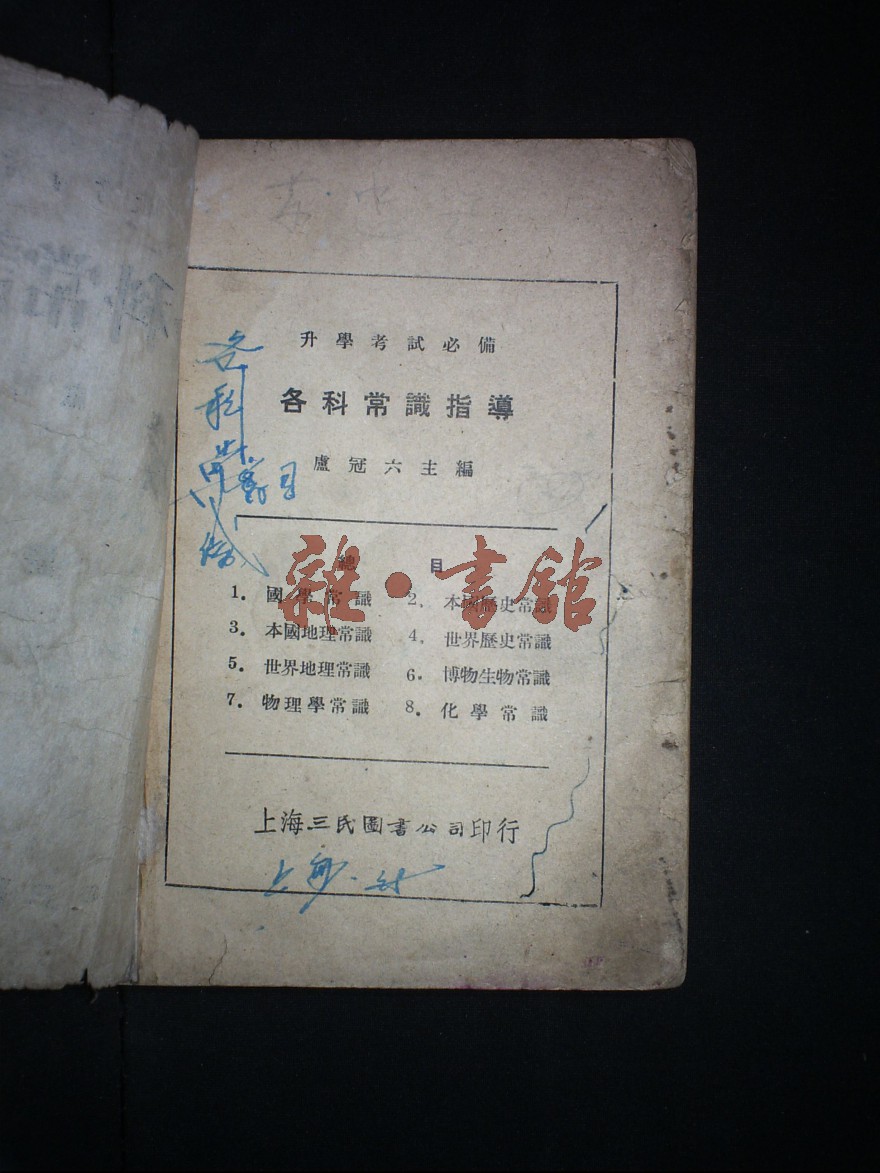 升學考試必備
各科常識指導
盧冠六主編
總 目
1. 國學常識 2. 本國歷史常識
3. 本國地理常識 4. 世界歷史常識
5. 世界地理常識 6. 博物生物常識
7. 物理學常識 8. 化學常識
上海三民圖書公司印行
各科常識
雜·書館
科常